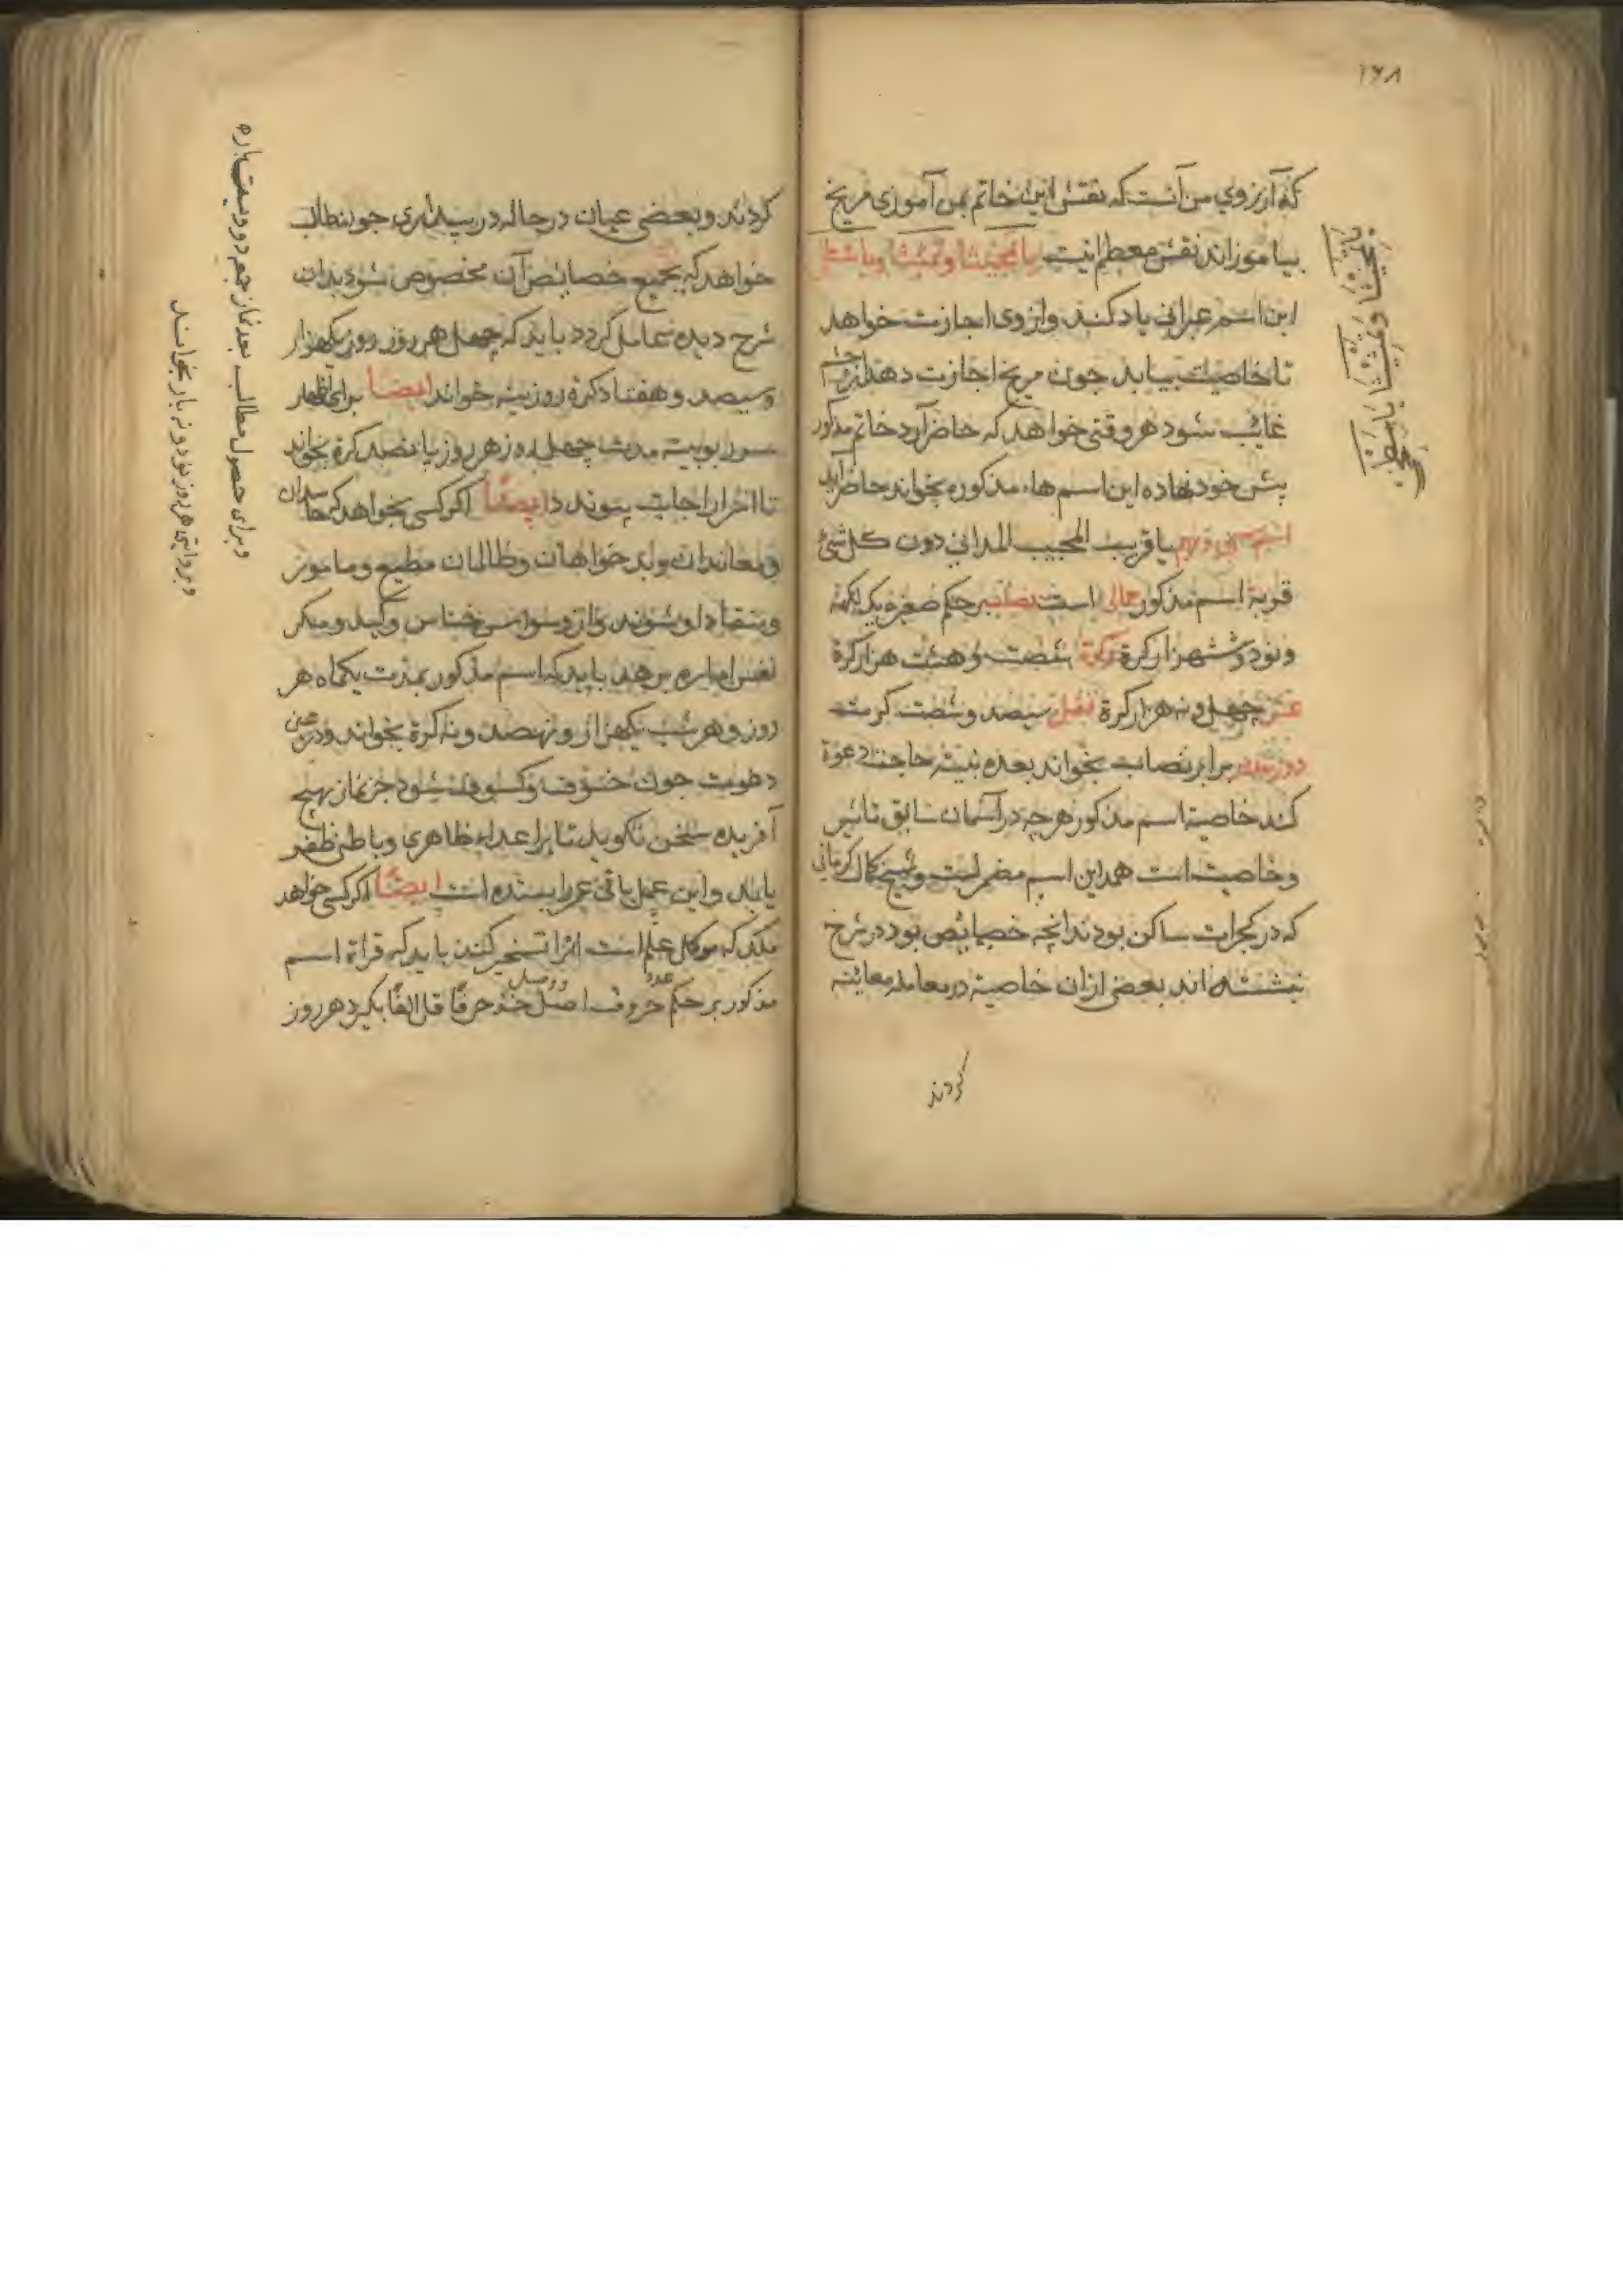 ۱۶۸
که آرزوی من آنست که نقش این خاتم بمن آموزی مریخ
بیاموزاند نقش معظم اینست
این اسم عبرانی یاد کند و از وی اجازت خواهد
تا خاصیت بیابد جون مریخ اجازت دهد از
غائب شود هر وقتی خواهد که حاضر آرد خاتم مذکور
پیش خود نهاده این اسم هاء مذکوره بخواند حاضر آید
اسم یا قریب المجیب المدانی دون کل شئ
قربه اسم مذکور جمالی است نصاب بر حکم صغیر یک لکهه
و نود و شش هزار کرة زکوة شصت و هشت هزار کرة
عشر چهل و نه هزار کرة قفل سیصد و شصت کرت
برابر نصاب بخواند بعده نیته حاجت دعوة
کند خاصیة اسم مذکور هرچه در آسمان سابق تاثیر
و خاصیت است همه این اسم مضمر است و شیخ کمال کرمانی
که در کجرات ساکن بودند انچه خصایص بود در شرح
نبشته اند بعضی ازان خاصیة در معامله معاینه
کردند
کردند و بعضی عیان در حاله در بیداری جو بنطالب
خواهد که بجمیع خصایص آن مخصوص شود بدان
شرح دیده عامل کردد باید که چهل هر روز روز یکهزار
و سیصد و هفتاد کرة روز بنیة خواند ایضاً برای اظهار
ربوبیة مدت چهل روز هر روز پانصد کرة بخواند
تا اجابت پیوندد ایضاً اکر کسی بخواهد که حاسدان
و معاندان و بد خواهان و ظالمان مطیع و مامور
و منقاد او شوند و از وسواس خناس و کید و مکر
نفس اماره برهد باید که اسم مذکور بمدت یکماه هر
روز و هر شب یکهزار و نهصد و نه کرة بخواند و در عین
دعوت جون خسوف و کسوف شود جز نماز بهیچ
آفریده سخن نکوید تا بر اعداء ظاهری و باطنی ظفر
یابد و این عمل باقی عمر را بسنده است ایضاً اکر کسی خواهد
ملک که موکل علم است او را تسخیر کند باید که قراة اسم
مذکور بر حکم عدد حروف اصل و وصل خذ حرفاً قل الفاً بکیرد هر روز
و برای حصول مطالب بعد نماز جمعه دو دویست باره
و بروایتی هر روز نود و نه بار بخواند